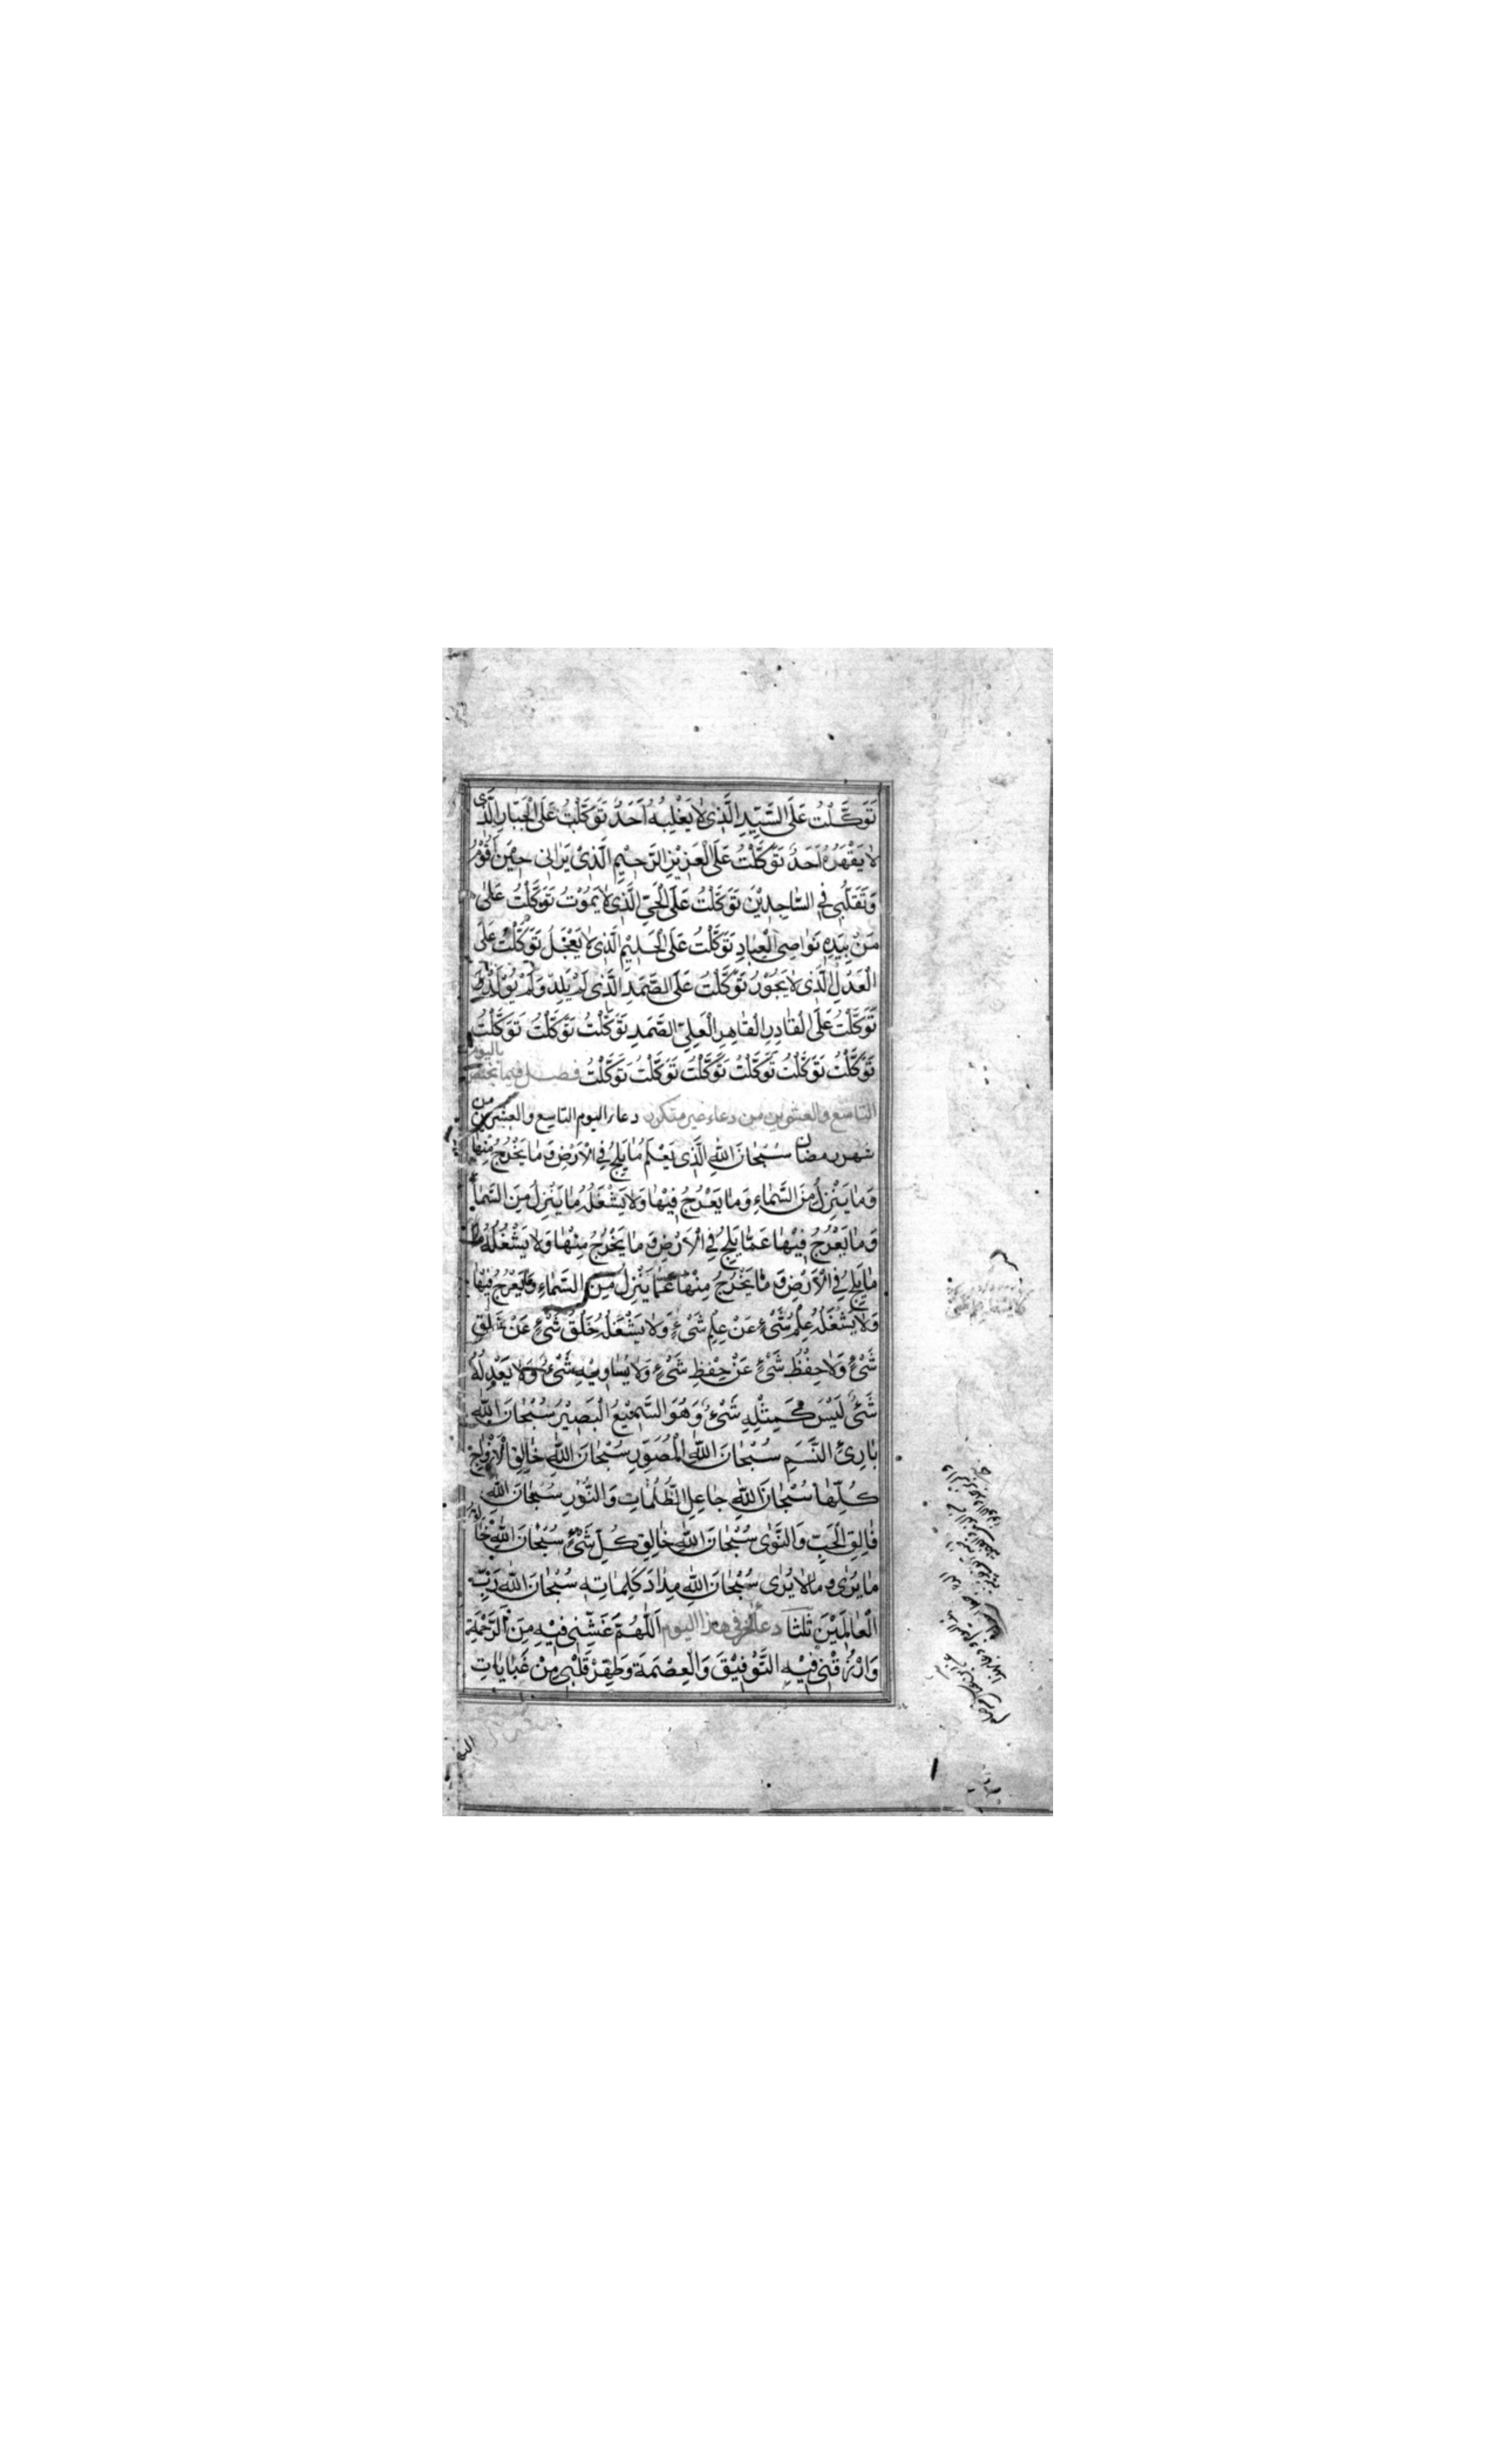 تَوَكَّلْتُ عَلَى السَّيِّدِ الَّذِى لَا يَغْلِبُهُ اَحَدٌ تَوَكَّلْتُ عَلَى الْجَبَّارِ الَّذِى
لَا يَقْهَرُهُ اَحَدٌ تَوَكَّلْتُ عَلَى الْعَزِيْزِ الرَّحِيْمِ الَّذِىْ يَرَانِى حِيْنَ اَقُوْمُ
وَتَقَلُّبِى فِى السَّاجِدِيْنَ تَوَكَّلْتُ عَلَى الْحَىِّ الَّذِى لَا يَمُوْتُ تَوَكَّلْتُ عَلَى
مَنْ بِيَدِهِ نَوَاصِى الْعِبَادِ تَوَكَّلْتُ عَلَى الْحَلِيْمِ الَّذِى لَا يَعْجَلُ تَوَكَّلْتُ عَلَى
الْعَدْلِ الَّذِى لَا يَجُوْرُ تَوَكَّلْتُ عَلَى الصَّمَدِ الَّذِى لَمْ يَلِدْ وَلَمْ يُوْلَدْ
تَوَكَّلْتُ عَلَى الْقَادِرِ الْقَاهِرِ الْعَلِىِّ الصَّمَدِ تَوَكَّلْتُ تَوَكَّلْتُ تَوَكَّلْتُ
تَوَكَّلْتُ تَوَكَّلْتُ تَوَكَّلْتُ تَوَكَّلْتُ تَوَكَّلْتُ تَوَكَّلْتُ فصل فيما يختص باليوم
التاسع والعشرين من دعاء غير متكرر دعاء اليوم التاسع والعشرين من
شهر رمضان سُبْحَانَ اللهِ الَّذِى يَعْلَمُ مَا يَلِجُ فِى الْاَرْضِ وَمَا يَخْرُجُ مِنْهَا
وَمَا يَنْزِلُ مِنَ السَّمَاءِ وَمَا يَعْرُجُ فِيْهَا وَلَا يَشْغَلُهُ مَا يَنْزِلُ مِنَ السَّمَاءِ
وَمَا يَعْرُجُ فِيْهَا عَمَّا يَلِجُ فِى الْاَرْضِ وَمَا يَخْرُجُ مِنْهَا وَلَا يَشْغَلُهُ
مَا يَلِجُ فِى الْاَرْضِ وَمَا يَخْرُجُ مِنْهَا عَمَّا يَنْزِلُ مِنَ السَّمَاءِ وَمَا يَعْرُجُ فِيْهَا
وَلَا يَشْغَلُهُ عِلْمُ شَىْءٍ عَنْ عِلْمِ شَىْءٍ وَلَا يَشْغَلُهُ خَلْقُ شَىْءٍ عَنْ خَلْقِ
شَىْءٍ وَلَا حِفْظُ شَىْءٍ عَنْ حِفْظِ شَىْءٍ وَلَا يُسَاوِيْهِ شَىْءٌ وَلَا يَعْدِلُهُ
شَىْءٌ لَيْسَ كَمِثْلِهِ شَىْءٌ وَهُوَ السَّمِيْعُ الْبَصِيْرُ سُبْحَانَ اللهِ
بَارِئِ النَّسَمِ سُبْحَانَ اللهِ الْمُصَوِّرِ سُبْحَانَ اللهِ خَالِقِ الْاَزْوَاجِ
كُلِّهَا سُبْحَانَ اللهِ جَاعِلِ الظُّلُمَاتِ وَالنُّوْرِ سُبْحَانَ اللهِ
فَالِقِ الْحَبِّ وَالنَّوَى سُبْحَانَ اللهِ خَالِقِ كُلِّ شَىْءٍ سُبْحَانَ اللهِ خَالِقِ
مَا يُرَى وَمَا لَا يُرَى سُبْحَانَ اللهِ مِدَادَ كَلِمَاتِهِ سُبْحَانَ اللهِ رَبِّ
الْعَالَمِيْنَ ثَلٰثًا دعاء آخر فى هذا اليوم اَللّٰهُمَّ غَشِّنِى فِيْهِ مِنَ الرَّحْمَةِ
وَارْزُقْنِى فِيْهِ التَّوْفِيْقَ وَالْعِصْمَةَ وَطَهِّرْ قَلْبِى مِنْ غَيَايَاتِ